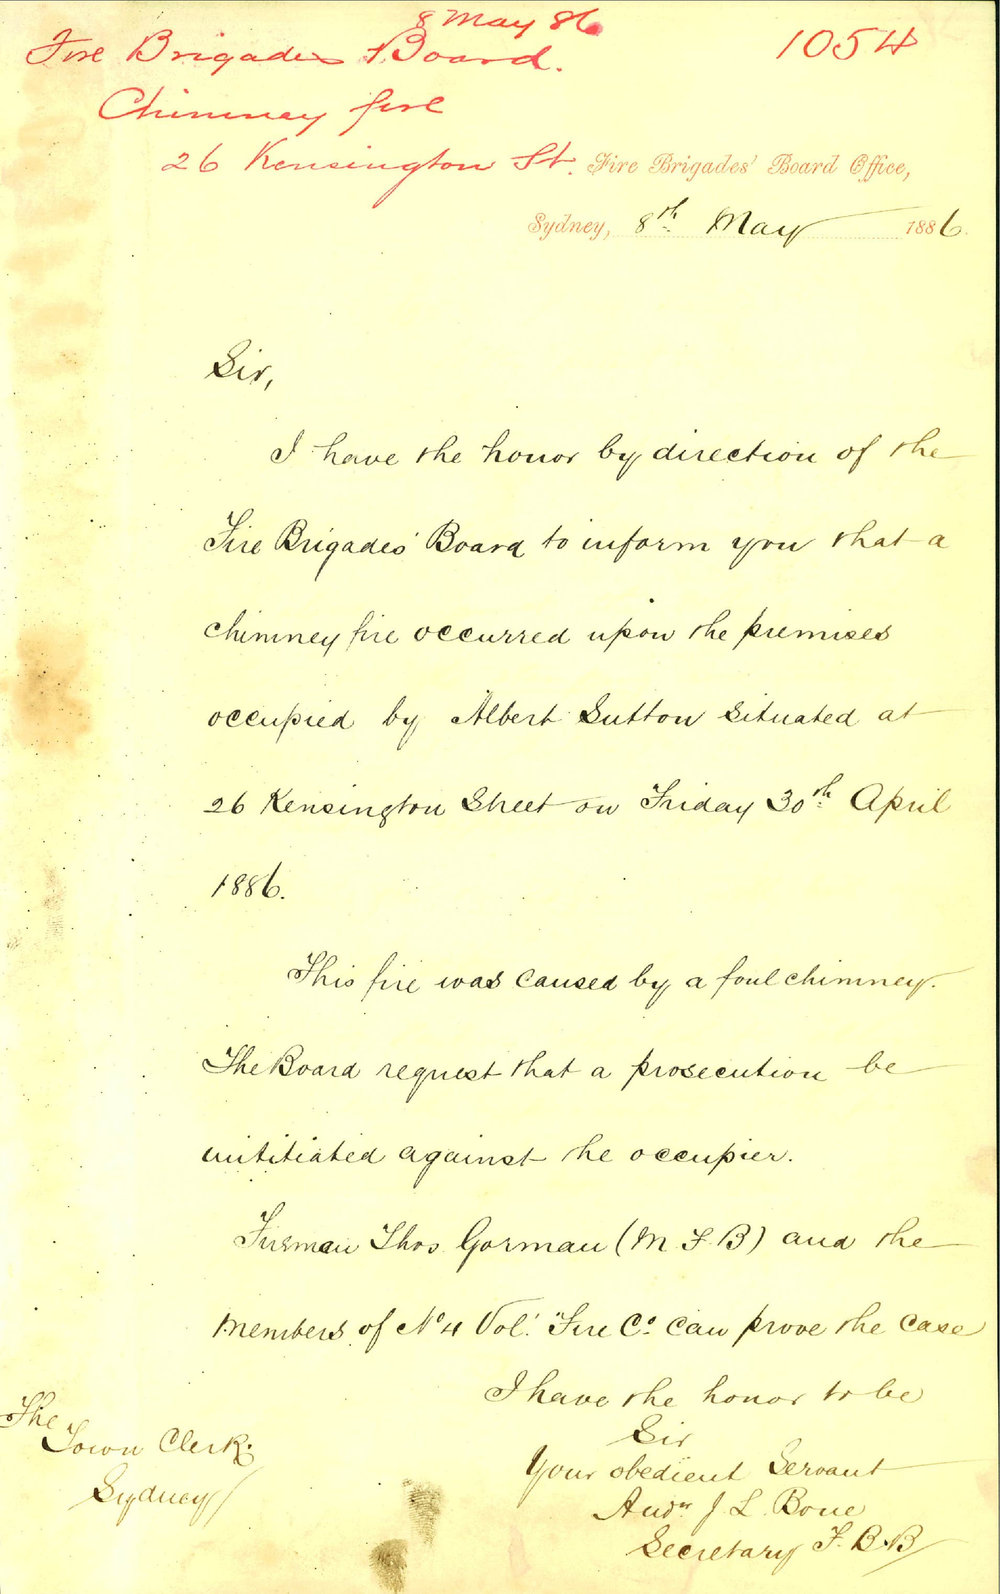 8 May 86
Fire Brigades Board.
1054
Chimney fire
26 Kensington St.
Fire Brigades' Board Office,
Sydney, 8th May 1886.
Sir,
I have the honor by direction of the
Fire Brigades' Board to inform you that a
chimney fire occurred upon the premises
occupied by Albert Sutton situated at
26 Kensington Street on Friday 30th April
1886.
This fire was caused by a foul chimney.
The Board request that a prosecution be
initiated against the occupier.
Fireman Thos. Gorman (M F. B) and the
members of No 4 Vol. Fire Co. can prove the case
I have the honor to be
Sir
Your obedient Servant
J. L. Bone
Secretary F. B. B
The
Town Clerk.
Sydney